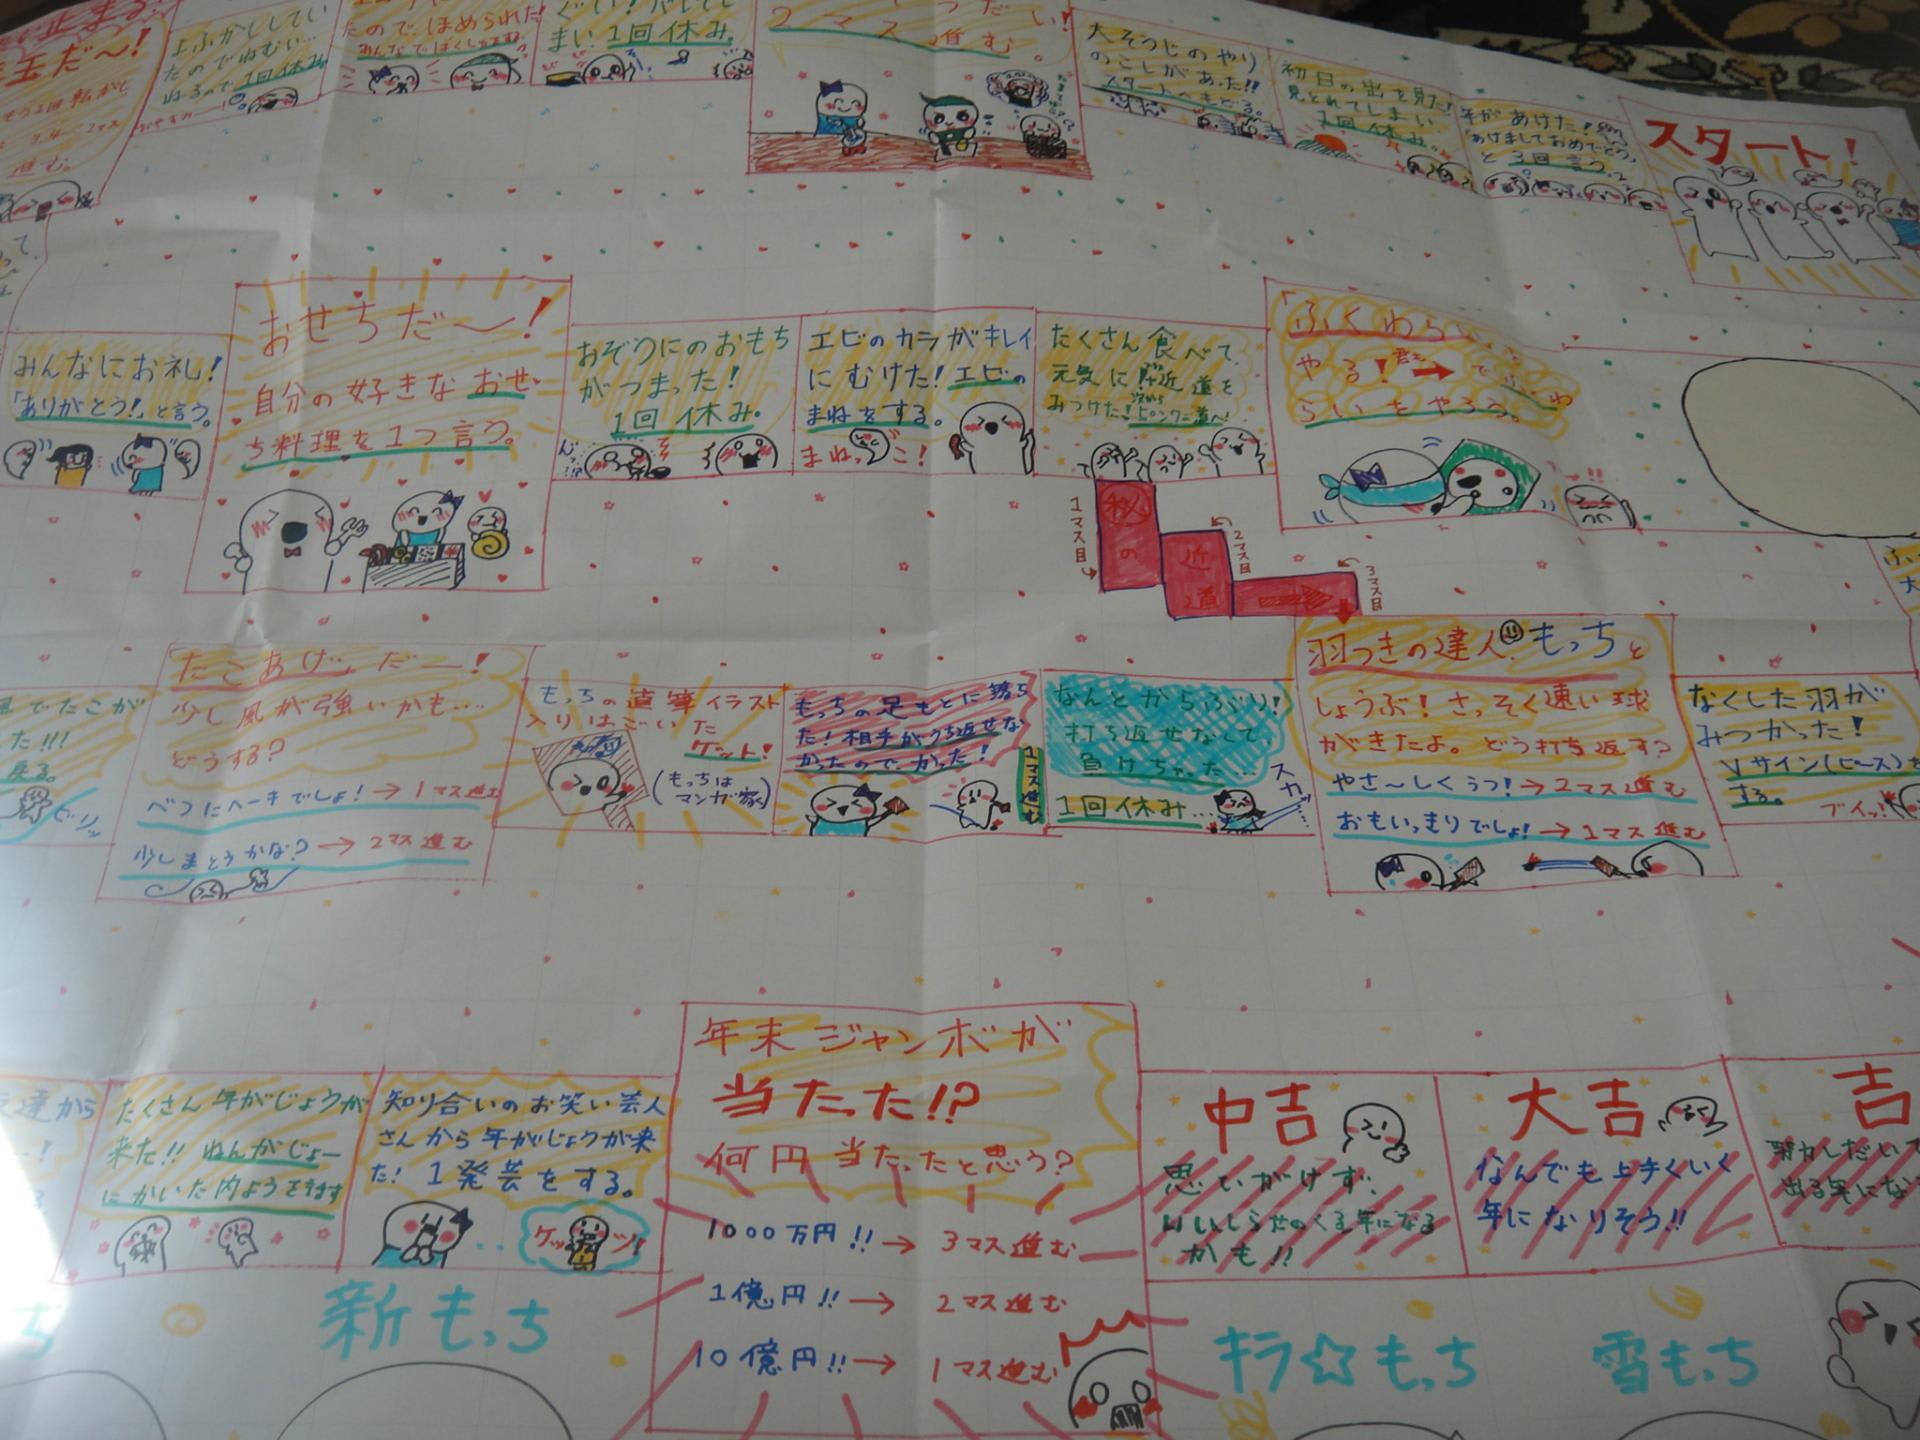 スタート!
年があけた!
「あけましておめでとう」
と3回言う。
初日の出を見た!
見とれてしまい
1回休み。
大そうじのやり
のこしがあった!!
スタートへもどる。
2マス進む。
まい1回休み。
たのでほめられた!
上ふかししてい
たのでねむい…
ねるので1回休み
玉だ〜!
進む。
みんなにお礼!
「ありがとう!」と言う。
おせちだ〜!
自分の好きなおせ
ち料理を1つ言う。
おぞうにのおもち
がつまった!
1回休み。
エビのカラがキレイ
にむけた!エビの
まねをする。
まねっこ!
たくさん食べて
元気に!近道を
みつけた!
やる!
らいをやろう。
1マス目
秘
の
近
道
2マス目
3マス目
羽つきの達人もっちと
しょうぶ!さっそく速い球
がきたよ。どう打ち返す?
やさ〜しくうつ!→2マス進む
おもいっきりでしょ!→1マス進む
なくした羽が
みつかった!
Vサイン(ピース)を
する。
ブイッ!
なんとからぶり!
打ち返せなくて
負けちゃった…
1回休み…
スカッ
もっちの足もとに落ち
た!相手がうち返せな
かったので、かった!
1マス進む
もっちの直筆イラスト
入りはごいた
ゲット!
(もっちは
マンガ家)
「たこあげ」だー!
少し風が強いかも…
どうする?
べつにヘーキでしょ!→1マス進む
少しまとうかな?→2マス進む
風でたこが
た!!!
戻る。
友達から
たくさん年がじょうが
来た!!ねんがじょー
にかいた内ようを話す
知り合いのお笑い芸人
さんから年がじょうが来
た!1発芸をする。
ゲッツ!
年末ジャンボが
当たった!?
何円当たったと思う?
1000万円!!→3マス進む
1億円!!→2マス進む
10億円!!→1マス進む
中吉
思いがけず、
いいしらせのくる年になる
かも!!
大吉
なんでも上手くいく
年になりそう!!
吉
新もっち
キラ☆もっち
雪もっち